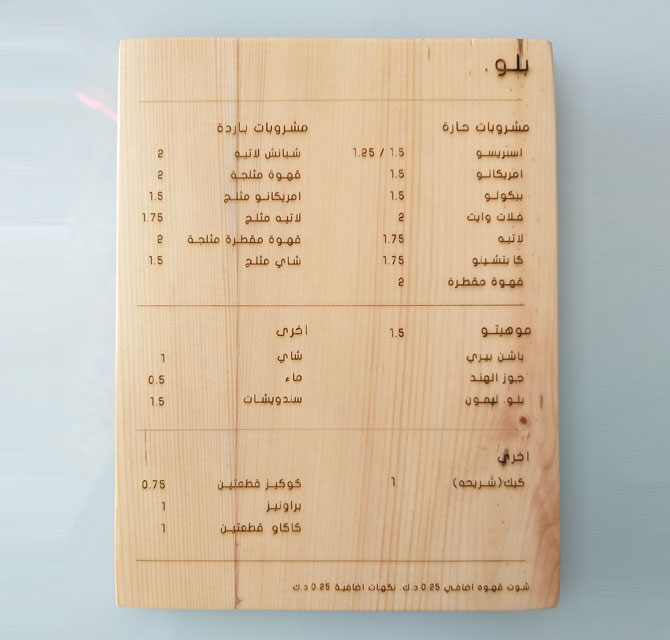 بلو.
مشروبات حارة
اسبريسو 1.5 / 1.25
امريكانو 1.5
بيكولو 1.5
فلات وايت 2
لاتيه 1.75
كابتشينو 1.75
قهوة مقطرة 2
مشروبات باردة
شبانش لاتيه 2
قهوة مثلجة 2
امريكانو مثلج 1.5
لاتيه مثلج 1.75
قهوة مقطرة مثلجة 2
شاي مثلج 1.5
موهيتو 1.5
باشن بيري
جوز الهند
بلو. ليمون
اخرى
شاي 1
ماء 0.5
سندويشات 1.5
اخرى
كيك(شريحه) 1
كوكيز قطعتين 0.75
براونيز 1
كاكاو قطعتين 1
شوت قهوه اضافي 0.25 د.ك. نكهات اضافية 0.25 د.ك